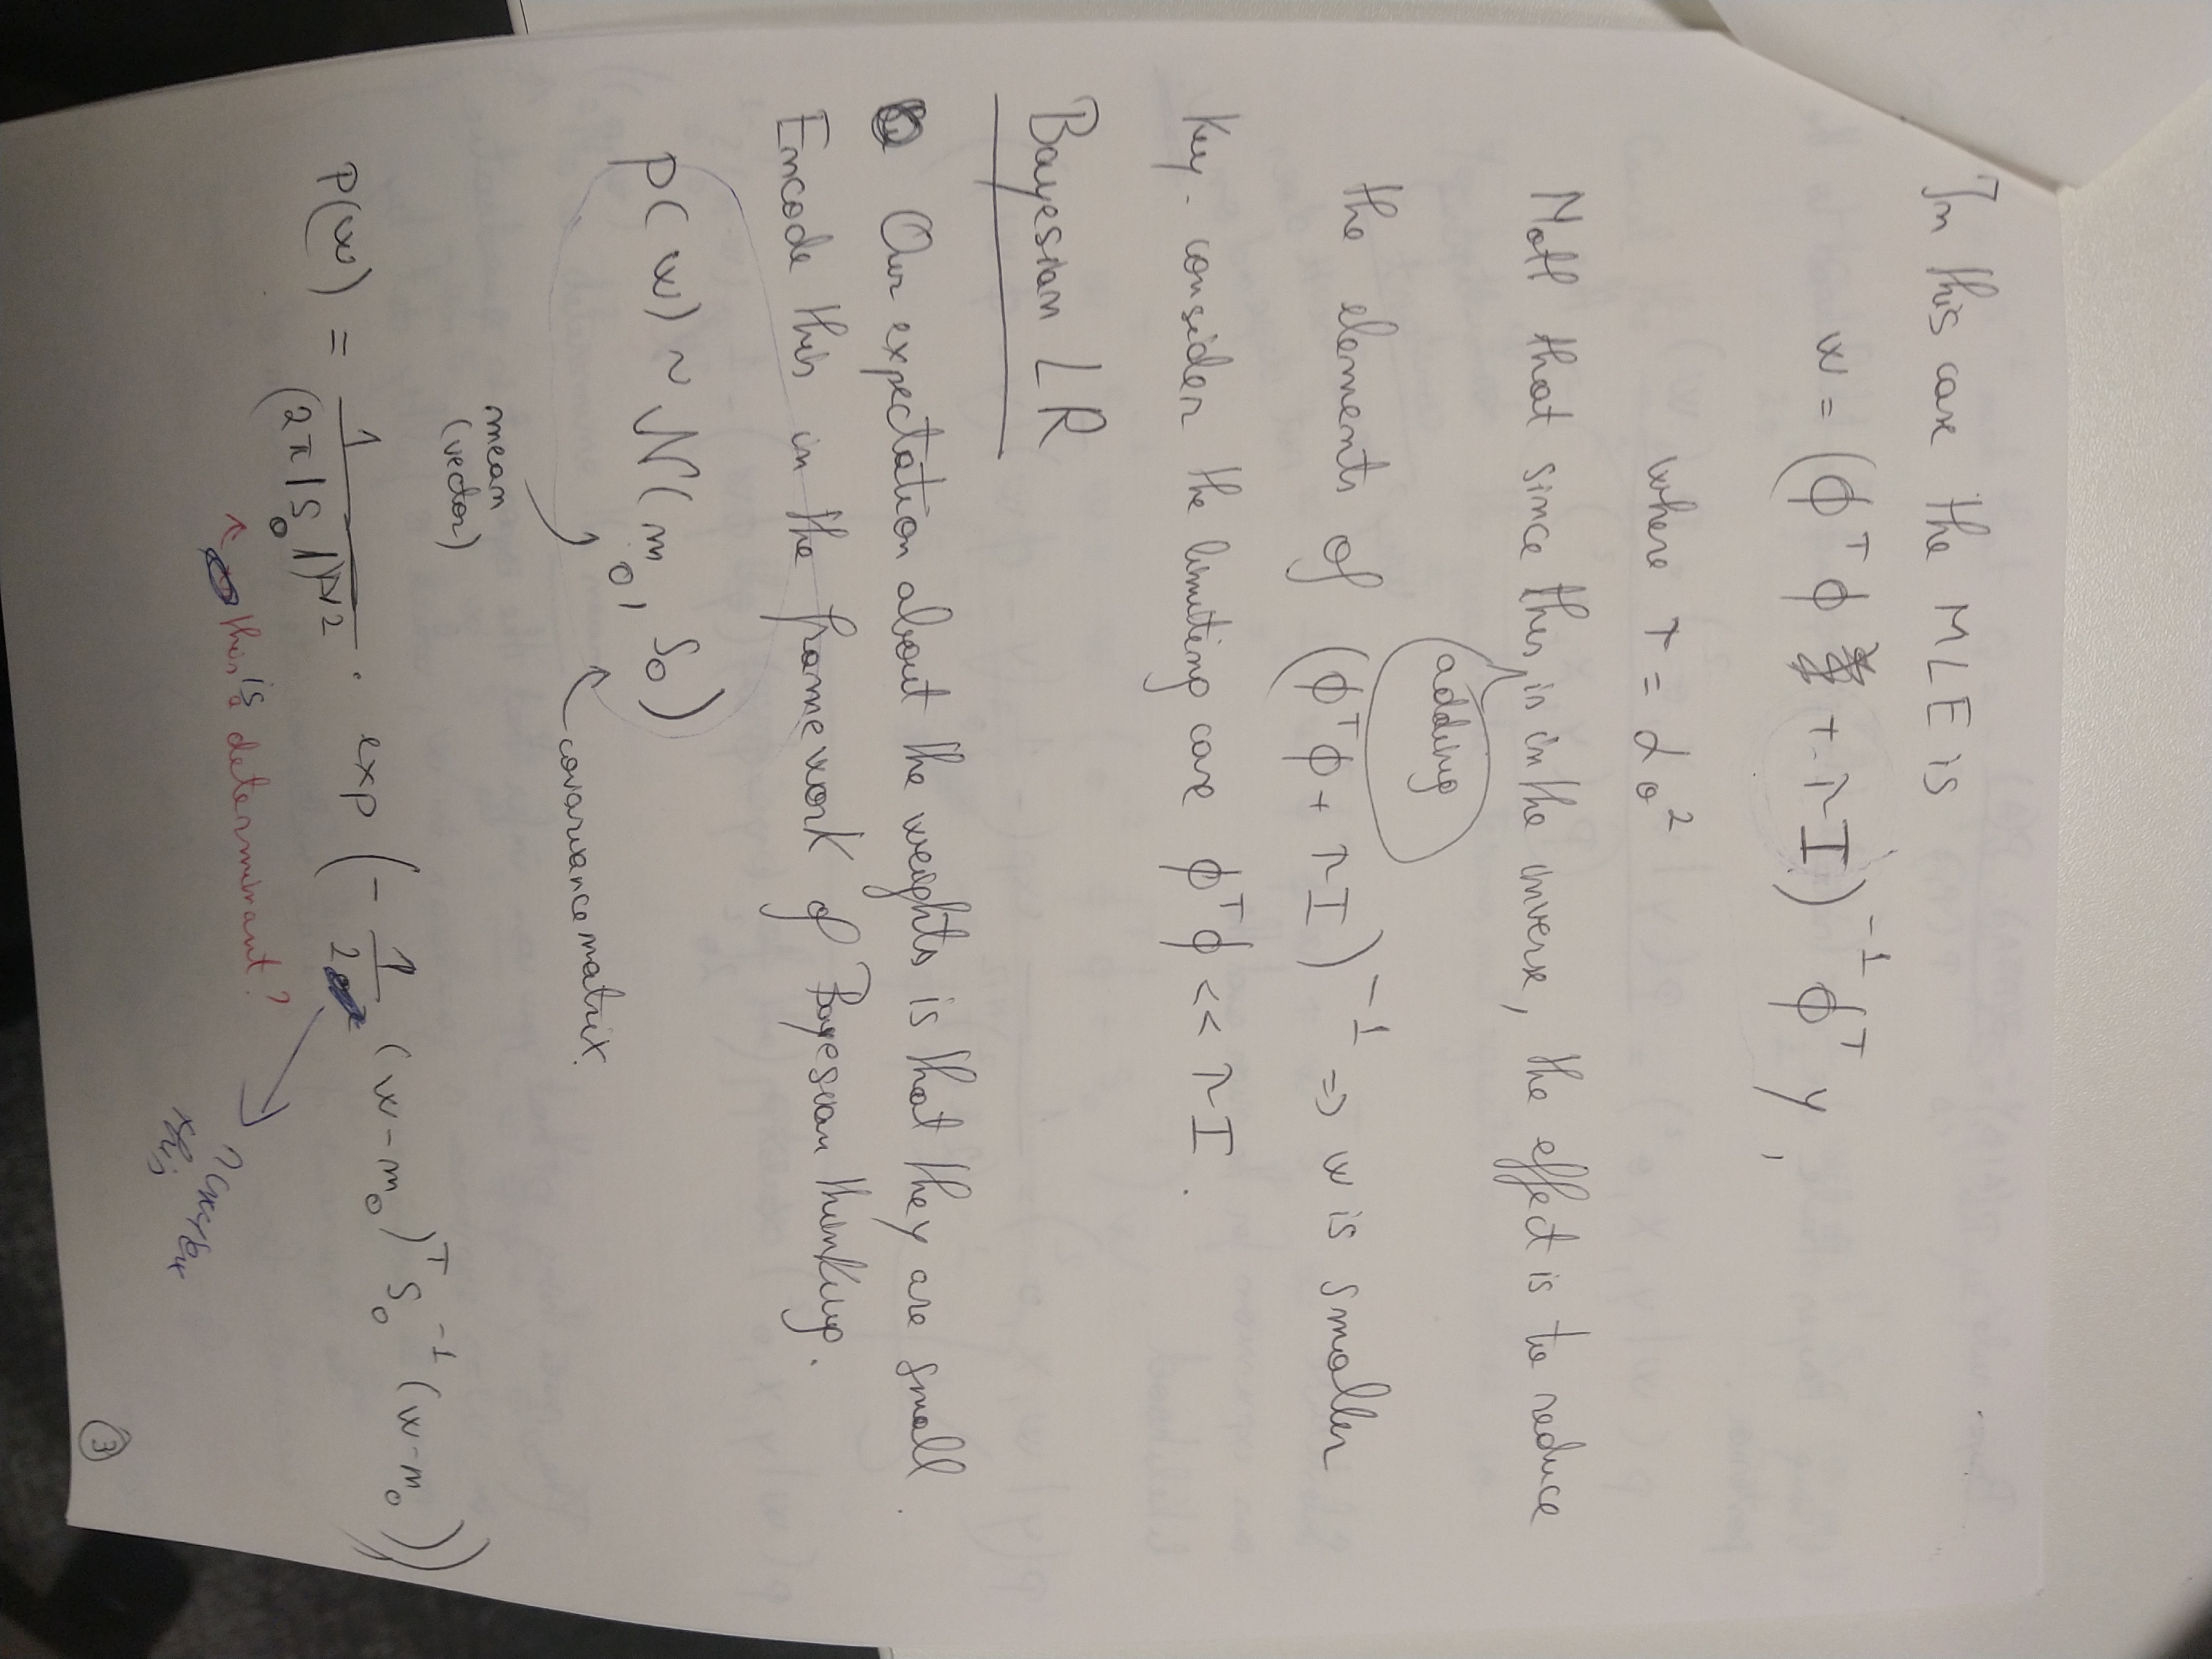 In this case the MLE is
w = (ϕᵀ ϕ + λ I)⁻¹ ϕᵀ y,
where λ = α σ²
Note that since this is in the inverse, the effect is to reduce
adding
the elements of (ϕᵀϕ + λI)⁻¹ => w is smaller
Key. consider the limiting case ϕᵀϕ << λI.
Bayesian LR
Our expectation about the weights is that they are small.
Encode this in the framework of Bayesian thinking.
p(w) ~ N(m₀, S₀)
covariance matrix.
mean
(vector)
P(w) = 1 / (2π|S₀|)^(N/2) · exp(- 1/2 (w-m₀)ᵀ S₀⁻¹ (w-m₀))
this is a determinant?
this
3